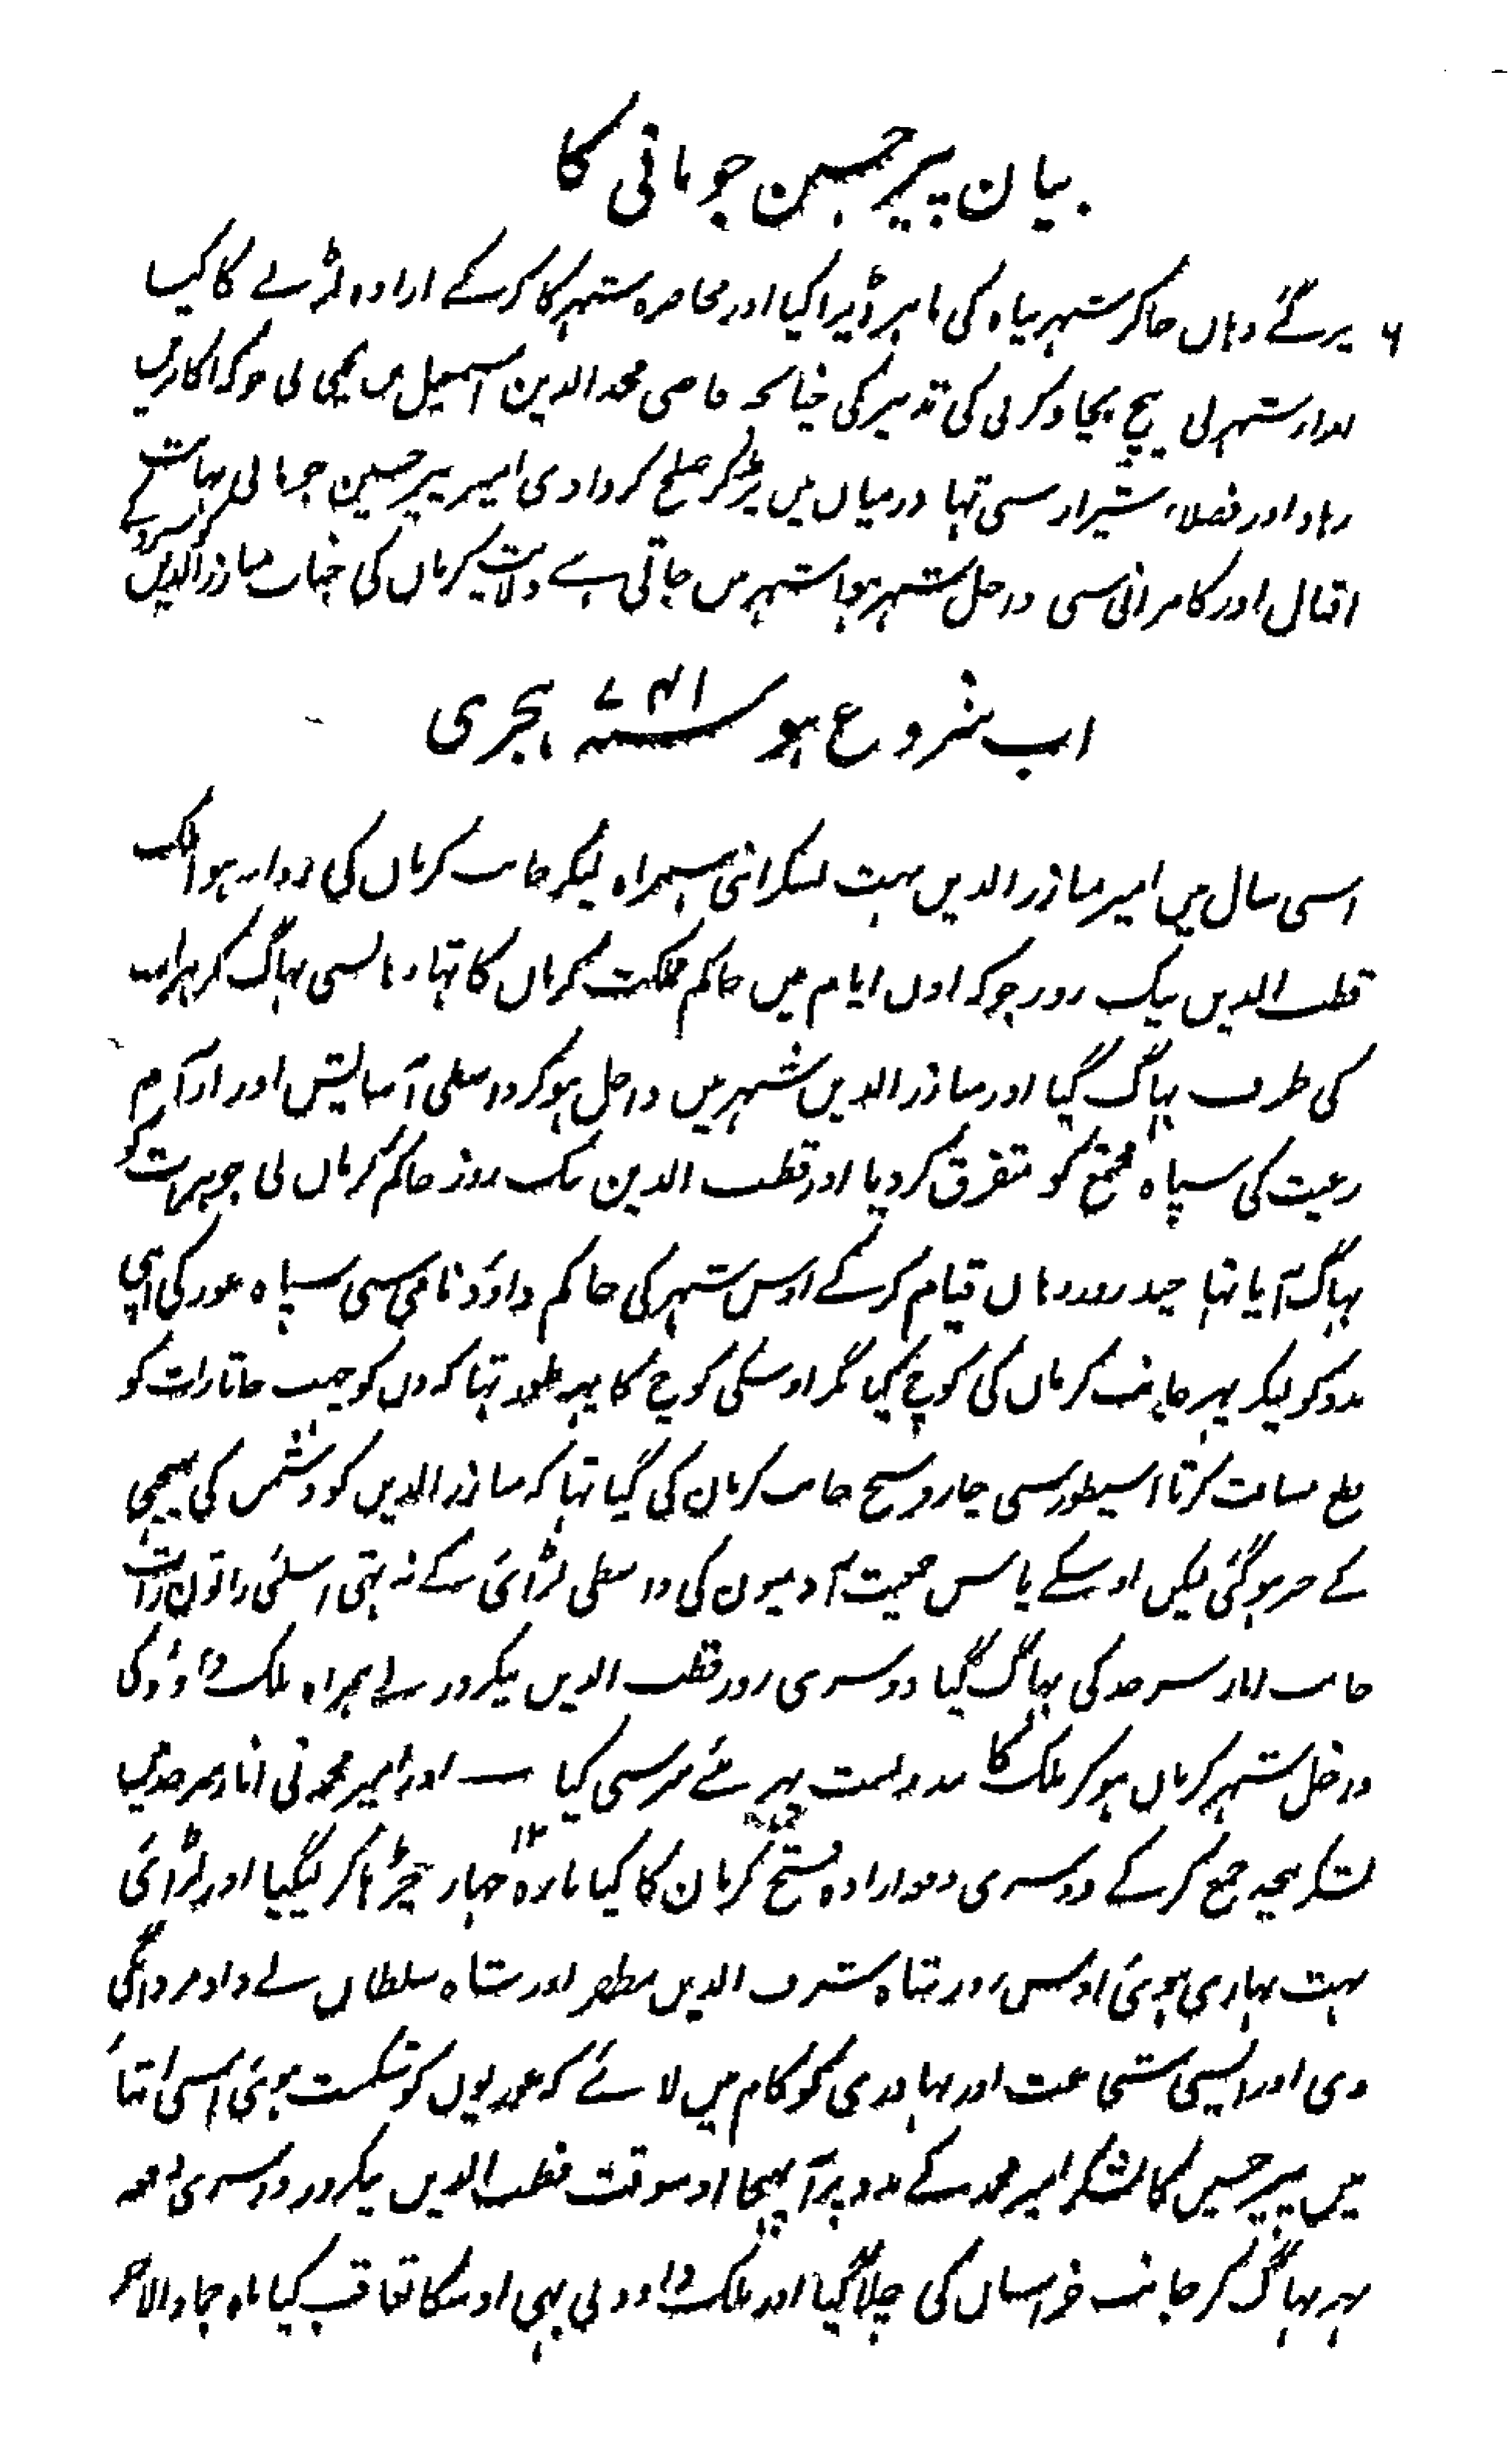 بیان پیر حسین چوبانی کا
پر گئے وہاں جاکر شہر پناہ کی باہر ڈیرا کیا اور محاصرہ شہر کا کرکے ارادہ لڑنے کا کیا
شہر نی بیچ بچاو کرنی کی تدبیر کی چنانچہ قاضی مجد الدین اسمعیل بن یحیی نی جو کہ اکابر
زہاد اور فضلاء شیراز سی تہا درمیاں میں پڑ کر صلح کروا دی امیر پیر حسین چوبانی نہایت
اقبال اور کامرانی سی داخل شہر ہوا شہر میں جاتی ہے ولایت کرماں کی جناب مبارز الدین کو سپرد کے
اب شروع ہو سنہ ۷۴۱ ہجری
اسی سال میں امیر مبارز الدیں بہت لشکر اپنی ہمراہ لیکر جانب کرماں کی روانہ ہوا ملک
قطب الدیں نیک روز جو کہ اول ایام میں حاکم مملکت کرماں کا تہا وہانسی بہاگ کر ہرات
کی طرف بہاگ گیا اور مبارز الدیں شہر میں داخل ہوکر واسطی آسایش اور آرام
رعیت کی سپاہ مجتمع کو متفرق کردیا اور قطب الدین نیک روز حاکم کرماں نی جو ہرات کو
بہاگ آیا تہا چند روز وہاں قیام کرکے اوس شہر کی حاکم داود نامی سی سپاہ غور کی اپنی
مدد کو لیکر پہر جانب کرماں کی کوچ کیا مگر اوسکی کوچ کا یہہ طور تہا کہ دں کو چہپ جاتا رات کو
قطع مسافت کرتا اسیطور سی جانب کرمان کی گیا تہا کہ مبارز الدیں کو دشمن کی پہنچی
کے خبر ہوگئی لیکں اوسکے پاس جمعیت آدمیون کی واسطی لڑائی کے نہ تہی اسلئی راتوں رات
جانب انار سرحد کی بہاگ گیا دوسری روز قطب الدیں نیکروز نے ہمراہ ملک داود کی
داخل شہر کرماں ہوکر ملک کا بندوبست پہر نئے سرسی کیا — اور امیر محمد نی انار سرحد میں
لشکر جمع کرکے دوسری دفعہ ارادہ فتح کرمان کا کیا بارہ ۱۲ ہزار چڑہا کر لیگیا اور لڑائی
بہت بہاری ہوئی اوس روز شاہ شرف الدیں مظفر اور شاہ سلطاں نے داد مردانگی
دی اور ایسی شجاعت اور بہادری کو کام میں لائے کہ غوریوں کو شکست ہوئی اسی اثنا
میں پیر حسیں کا لشکر امیر محمد کے مدد پر آ پہنچا اوسوقت قطب الدیں نیکروز دوسری دفعہ
پہر بہاگ کر جانب خراساں کی چلا گیا اور ملک داود نی بہی اوسکا تعاقب کیا ماہ جمادالاخر